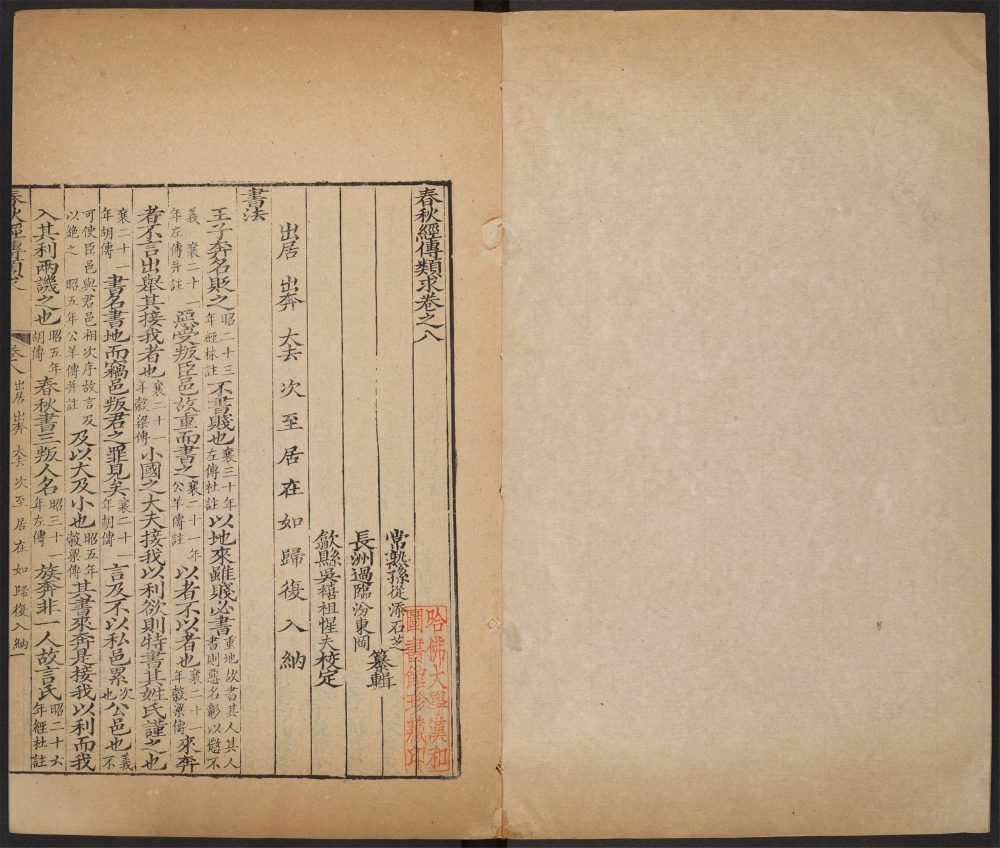 春秋經傳類求卷之八
常熟孫從添石芝
長洲過臨汾東岡
纂輯
歙縣吳禧祖惺夫校定
哈佛大學漢和
圖書館珍藏印
出居 出奔 大去 次 至 居 在 如 歸 復 入 納
書法
王子奔名貶之昭二十三年經林註不書賤也襄三十年左傳杜註以地來雖賤必書重地故書其人其人書則惡名彰以懲不
義襄二十一年左傳并註惡受叛臣邑故重而書之襄二十一年公羊傳註以者不以者也襄二十一年穀梁傳來奔
者不言出舉其接我者也襄二十一年穀梁傳小國之大夫接我以利欲則特書其姓氏謹之也
襄二十一年胡傳書名書地而竊邑叛君之罪見矣襄二十一年胡傳言及不以私邑累公邑也次也義不
可使臣邑與君邑相次序故言及以絶之昭五年公羊傳并註及以大及小也昭五年穀梁傳其書來奔是接我以利而我
入其利兩譏之也昭五年胡傳春秋書三叛人名昭三十一年左傳族奔非一人故言氏昭二十六年經杜註
春秋經傳類求 卷八 出居 出奔 大去 次 至 居 在 如 歸 復 入 納 一